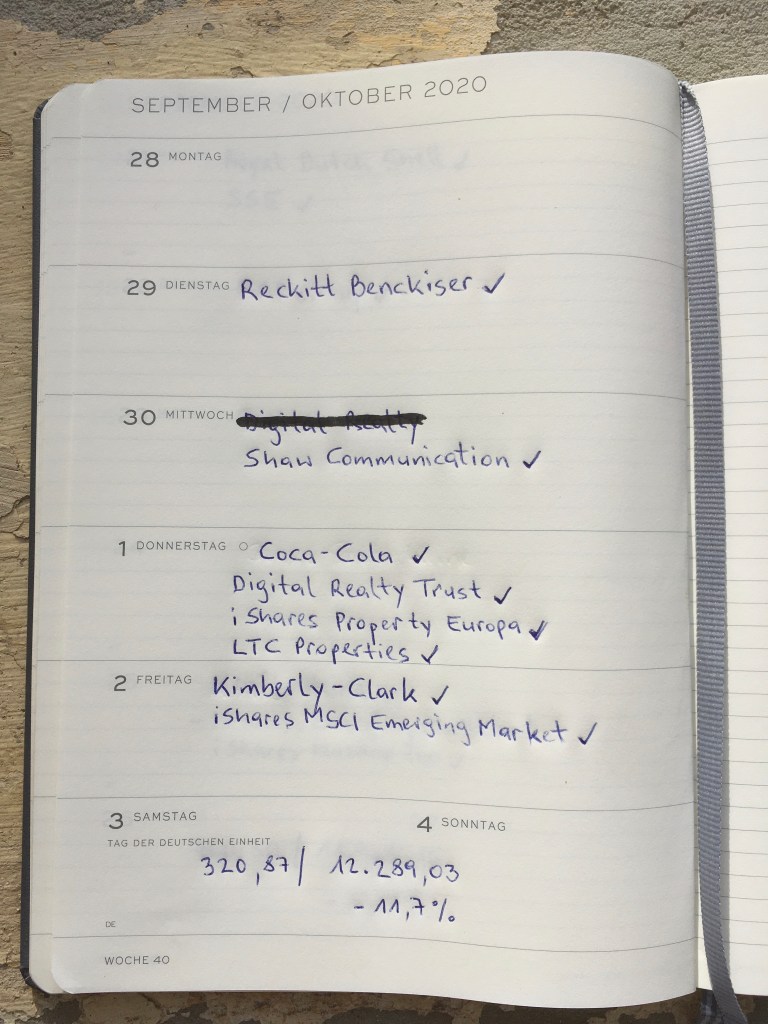 SEPTEMBER / OKTOBER 2020
28 MONTAG
29 DIENSTAG Reckitt Benckiser ✓
30 MITTWOCH Digital Realty
Shaw Communication ✓
1 DONNERSTAG ○ Coca-Cola ✓
Digital Realty Trust ✓
iShares Property Europa ✓
LTC Properties ✓
2 FREITAG Kimberly-Clark ✓
iShares MSCI Emerging Market ✓
3 SAMSTAG 4 SONNTAG
TAG DER DEUTSCHEN EINHEIT
320,87 / 12.289,03
- 11,7%
DE
WOCHE 40